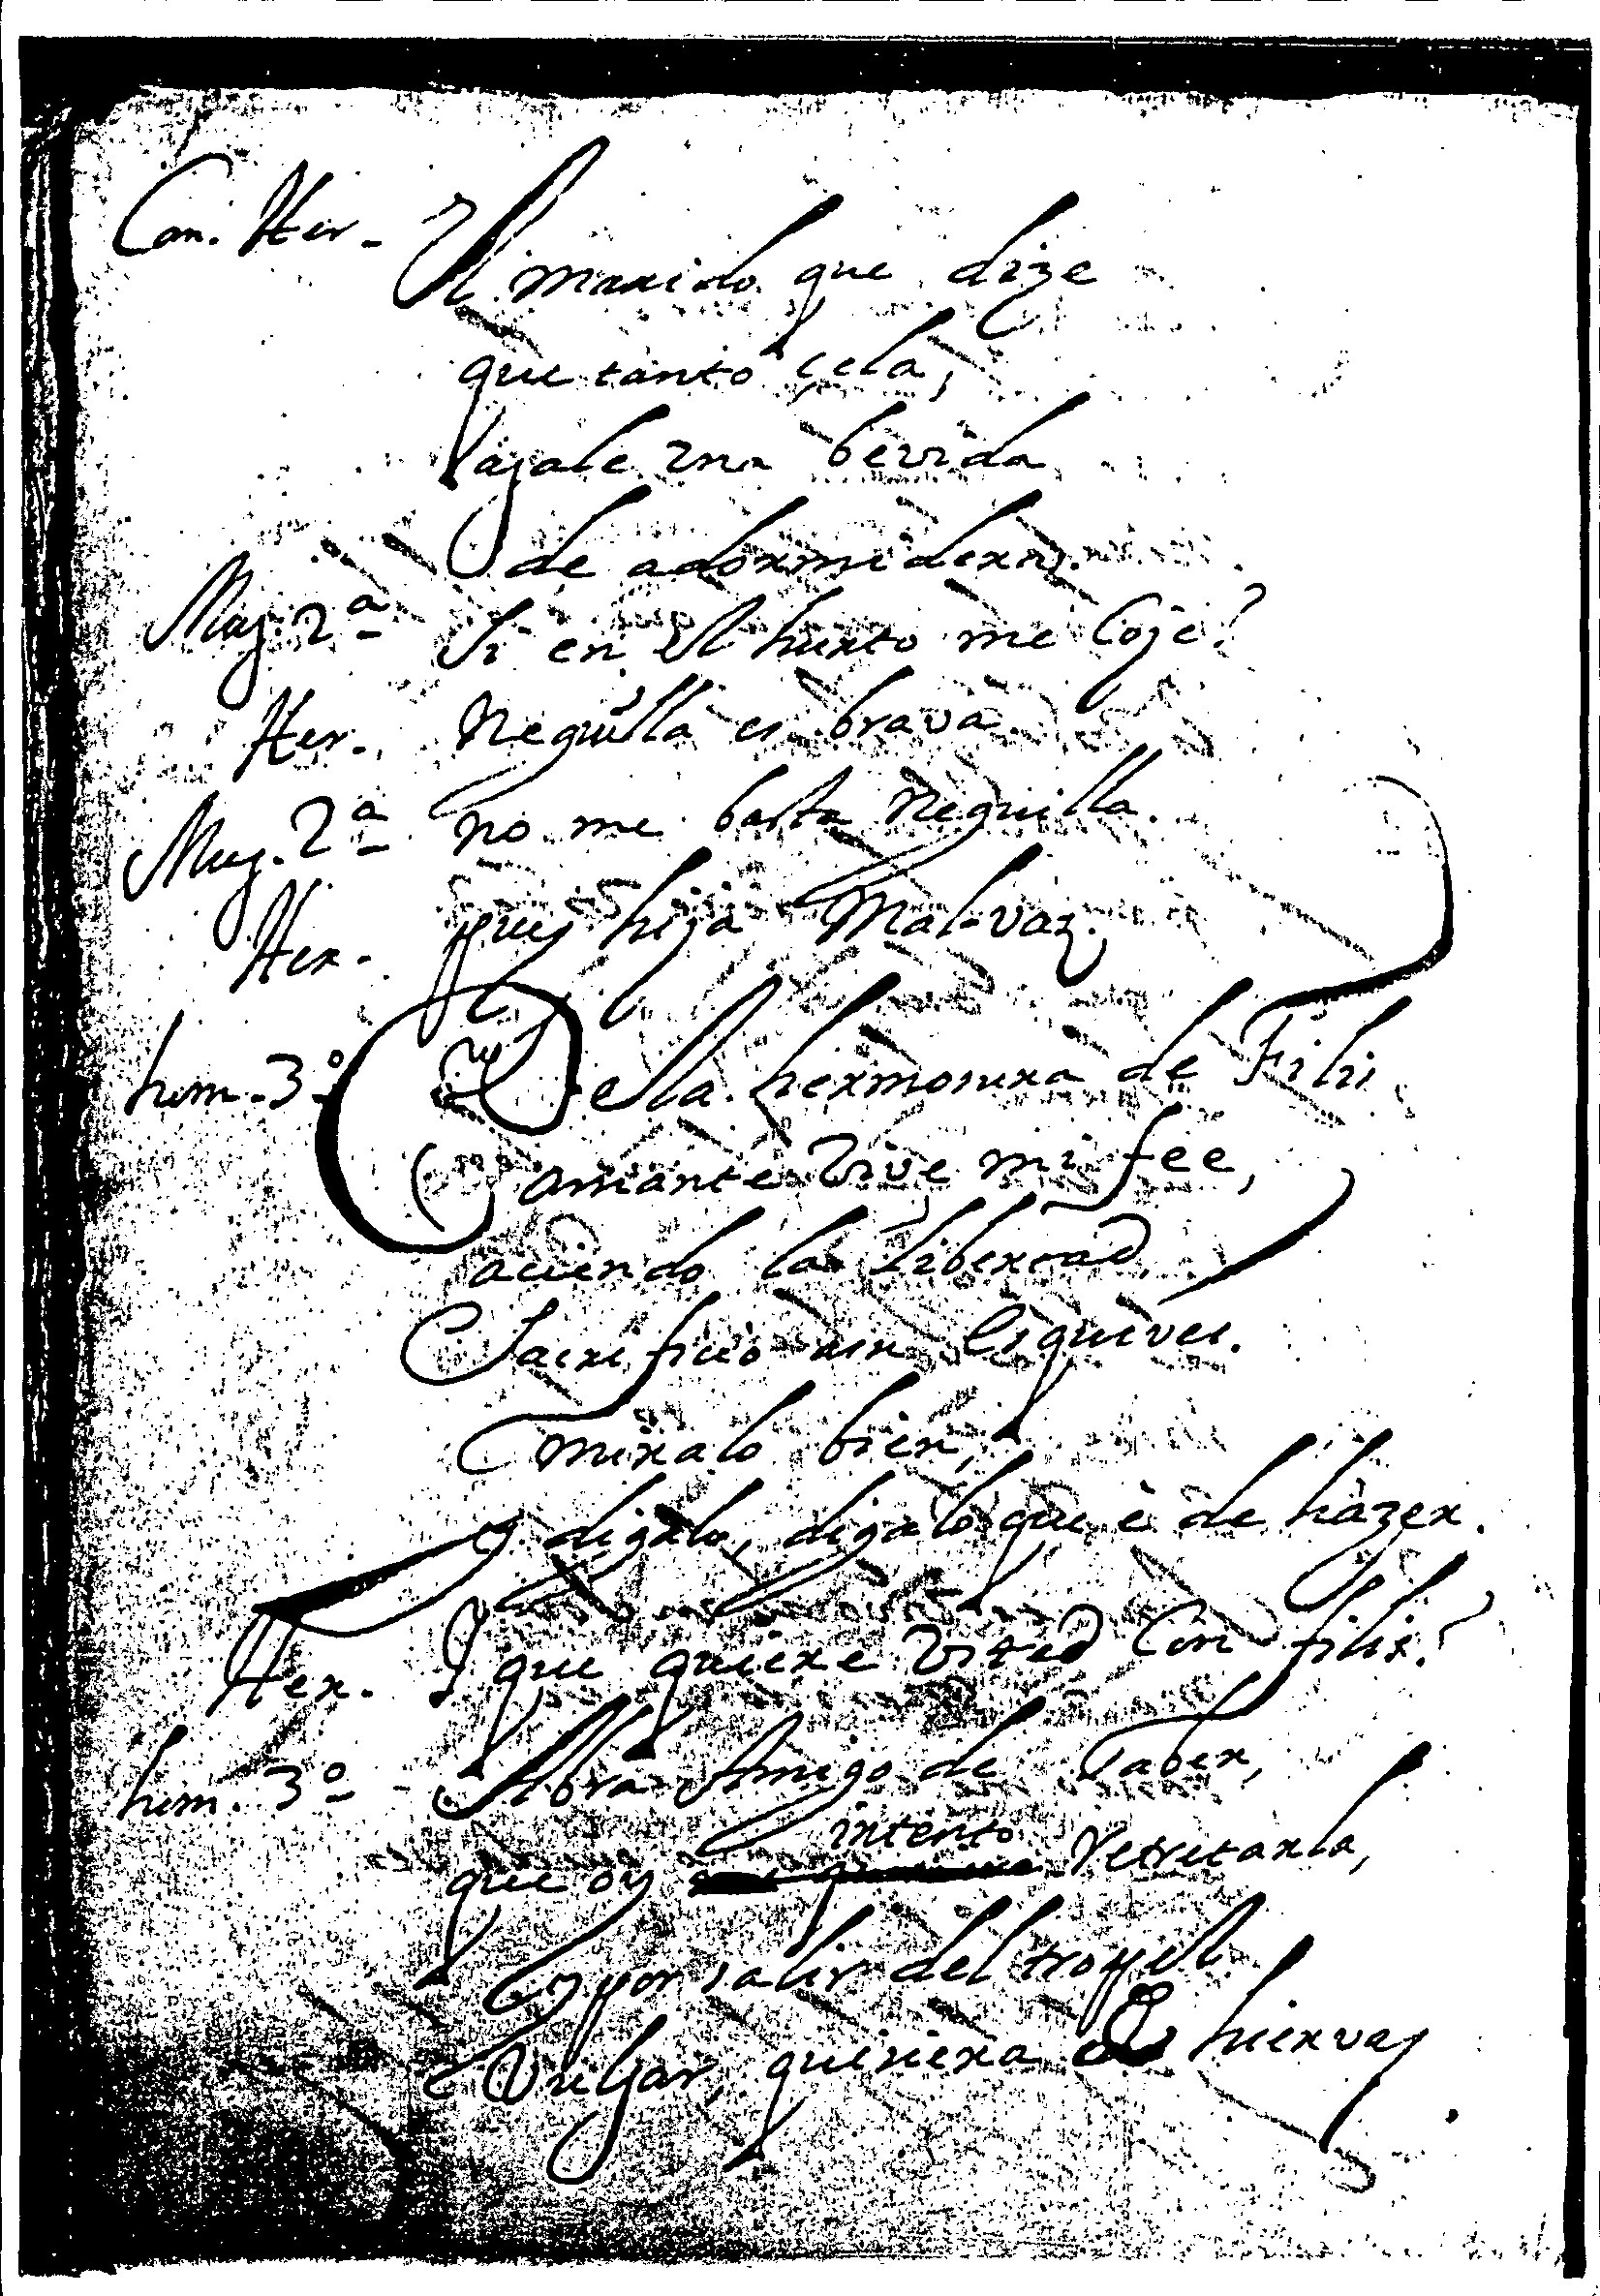 Can. Her - El marido que dize
que tanto çela,
hagale una bevida
de adormideras.
Mug. 2ª Si en el hurto me Coje?
Her. Neguilla es brava
Mug. 2ª no me basta neguilla.
Her. pues hija Malvaz.
hom. 3º De la hermosura de Filis
amante vive mi fee,
aciendo la libertad
Sacrificio a sus esquivez.
miralo bien,
y digalo, digalo que è de hazer.
Her. I que quiere Vsted Con filis?
hom. 3º Abra Amigo de Saber,
que oy intento retretarla,
y por salir del tropel
Vulgar, quisiera hiervas